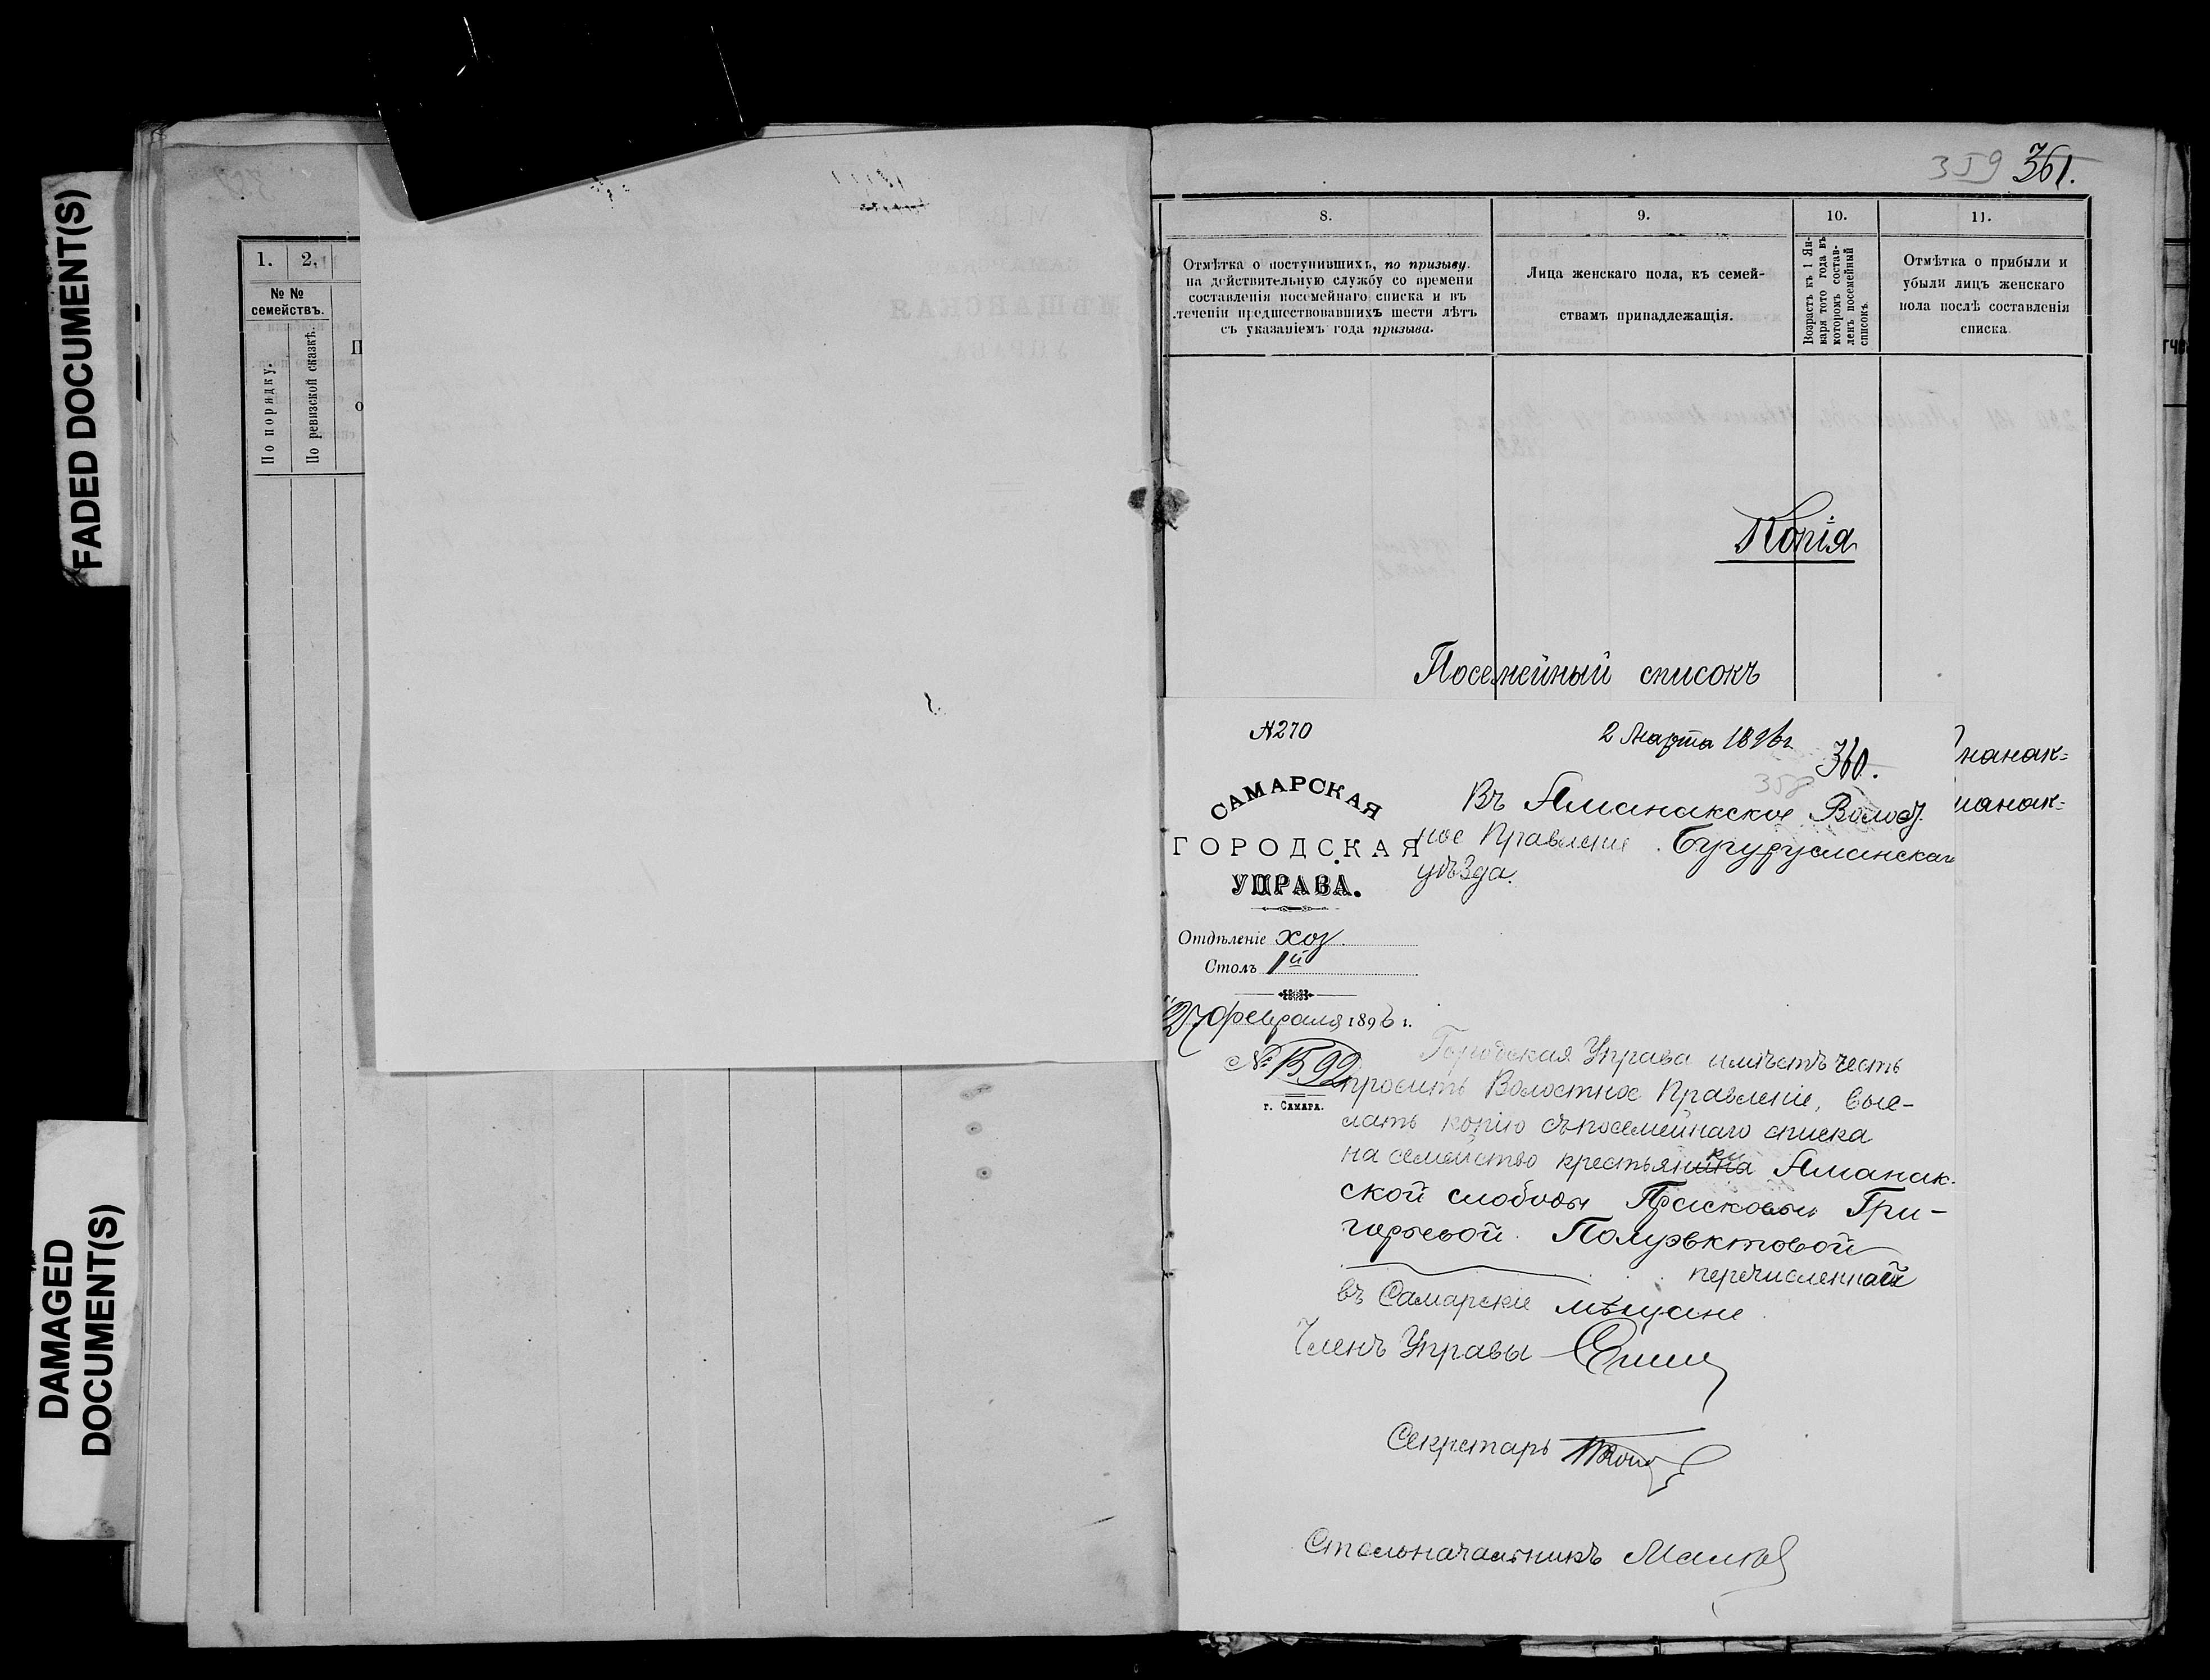 FADED DOCUMENT(S)
DAMAGED
DOCUMENT(S)
1. 2.
№ №
семействъ.
По порядку.
По ревизской сказкѣ.
359 361.
8. 9. 10. 11.
Отмѣтка о поступившихъ, по призыву.
на действительную службу со времени
составленія посемейнаго списка и въ
теченіи предшествовавшихъ шести лѣтъ
съ указаніемъ года призыва.
Лица женскаго пола, къ семей-
ствамъ принадлежащія.
Возрастъ къ 1 Ян-
варя того года въ
которомъ состав-
ленъ посемейный
списокъ.
Отмѣтка о прибыли и
убыли лицъ женскаго
пола послѣ составленія
списка.
Копія
Посемейный списокъ
манак=
манак=
№270
2 Марта 1896 г.
360.
358
САМАРСКАЯ
ГОРОДСКАЯ
УПРАВА.
Отдѣленіе хоз.
Столъ 1й
"27 февраля 1896 г.
№ 1592
г. Самара.
Въ Аманакское Волост.
ное Правленіе Бугурусланскаго
уѣзда.
Городская Управа имѣетъ честь
просить Волостное Правленіе, выс-
лать копію съ посемейнаго списка
на семейство крестьянина ки Аманак-
ской слободы Прасковьи Гри-
горьевой Полуэктовой
перечисленной
въ Самарскіе мѣщане.
Членъ Управы
Секретарь
Столоначальникъ